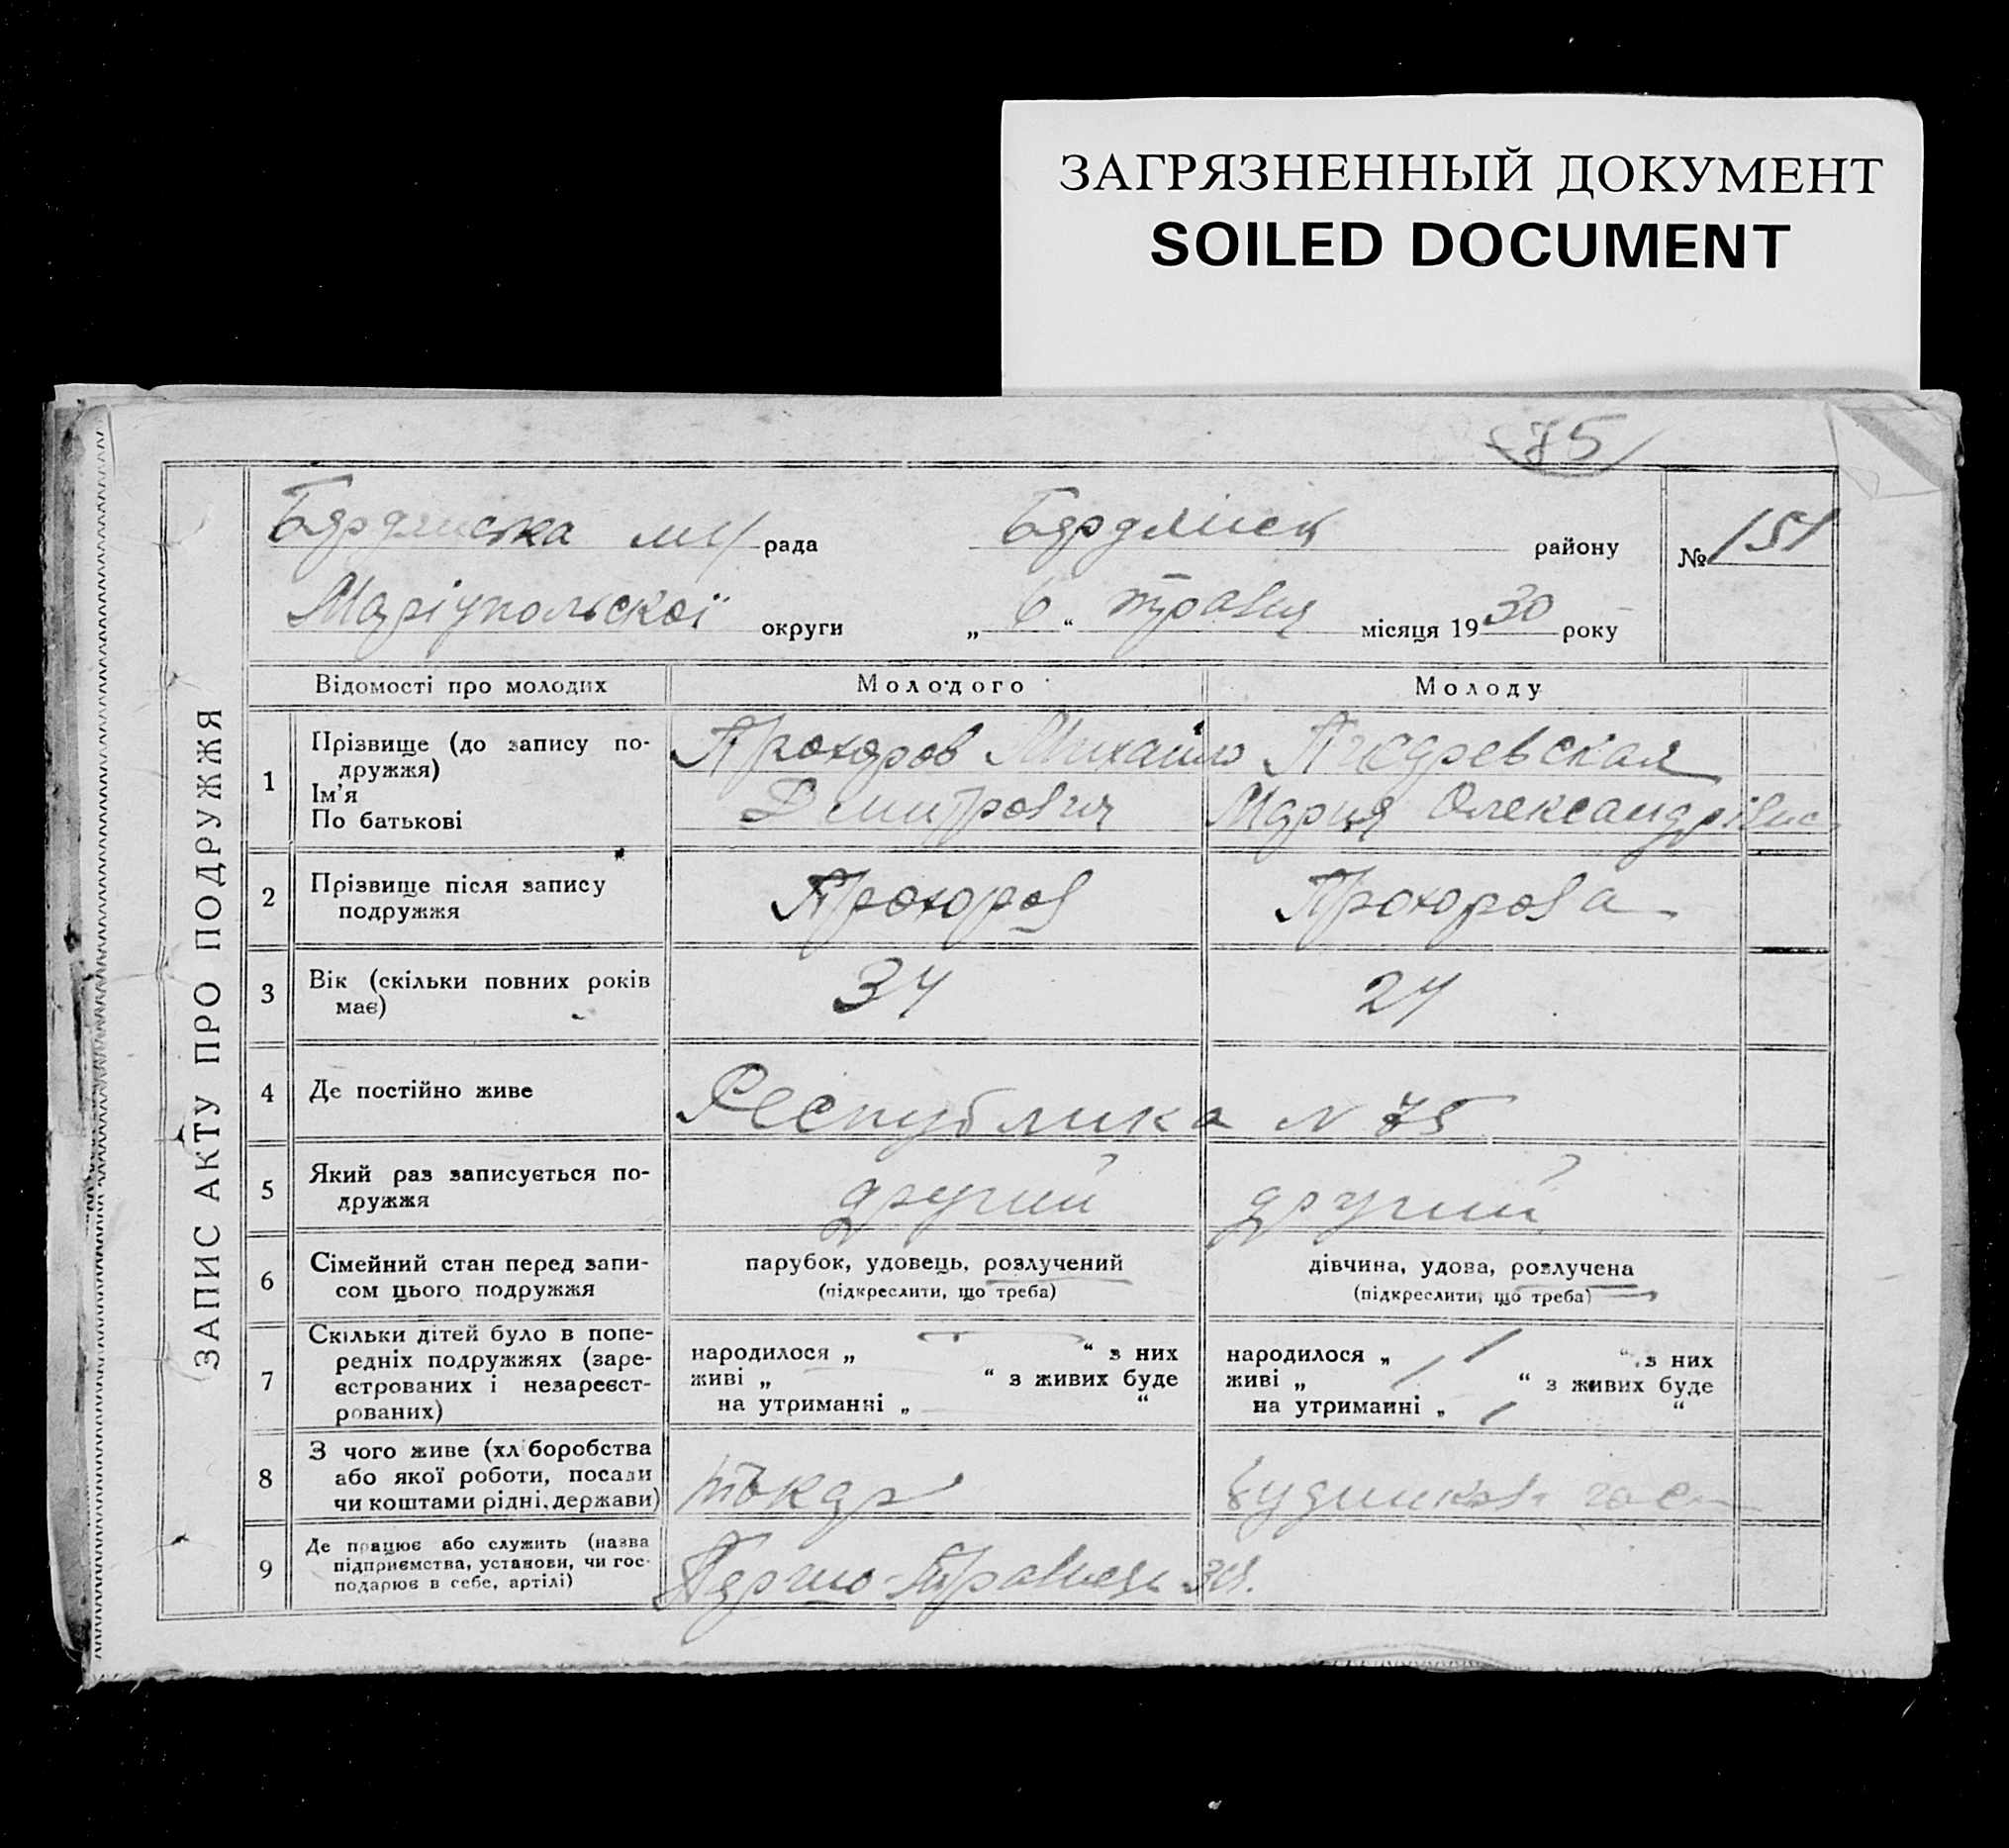 ЗАГРЯЗНЕННЫЙ ДОКУМЕНТ
SOILED DOCUMENT
75
ЗАПИС АКТУ ПРО ПОДРУЖЖЯ
Бердянська рада Бердянськ району № 151
Маріупольскої округи „ 6 “ травня місяця 1930 року
Відомості про молодих Молодого Молоду
1 Прізвище (до запису по-
дружжя)
Ім'я
По батькові
Прохоров Михайло
Дмитрович
Мария Олександрівна
2 Прізвище після запису
подружжя
Прохоров Прохорова
3 Вік (скільки повних років
має)
34 24
4 Де постійно живе Республика N 75
5 Який раз записується по-
дружжя
другий другий
6 Сімейний стан перед запи-
сом цього подружжя
парубок, удовець, розлучений
(підкреслити, що треба)
дівчина, удова, розлучена
(підкреслити, що треба)
7 Скільки дітей було в попе-
редніх подружжях (заре-
єстрованих і незареєст-
рованих)
народилося „ — “ з них
живі „ — “ з живих буде
на утриманні „ — “
народилося „ 1 “ з них
живі „ 1 “ з живих буде
на утриманні „ 1 “
8 З чого живе (хліборобства
або якої роботи, посади
чи коштами рідні, держави)
токарь
9 Де працює або служить (назва
підприємства, установи, чи гос-
подарює в себе, артілі)
Першо-Травнев. зав.